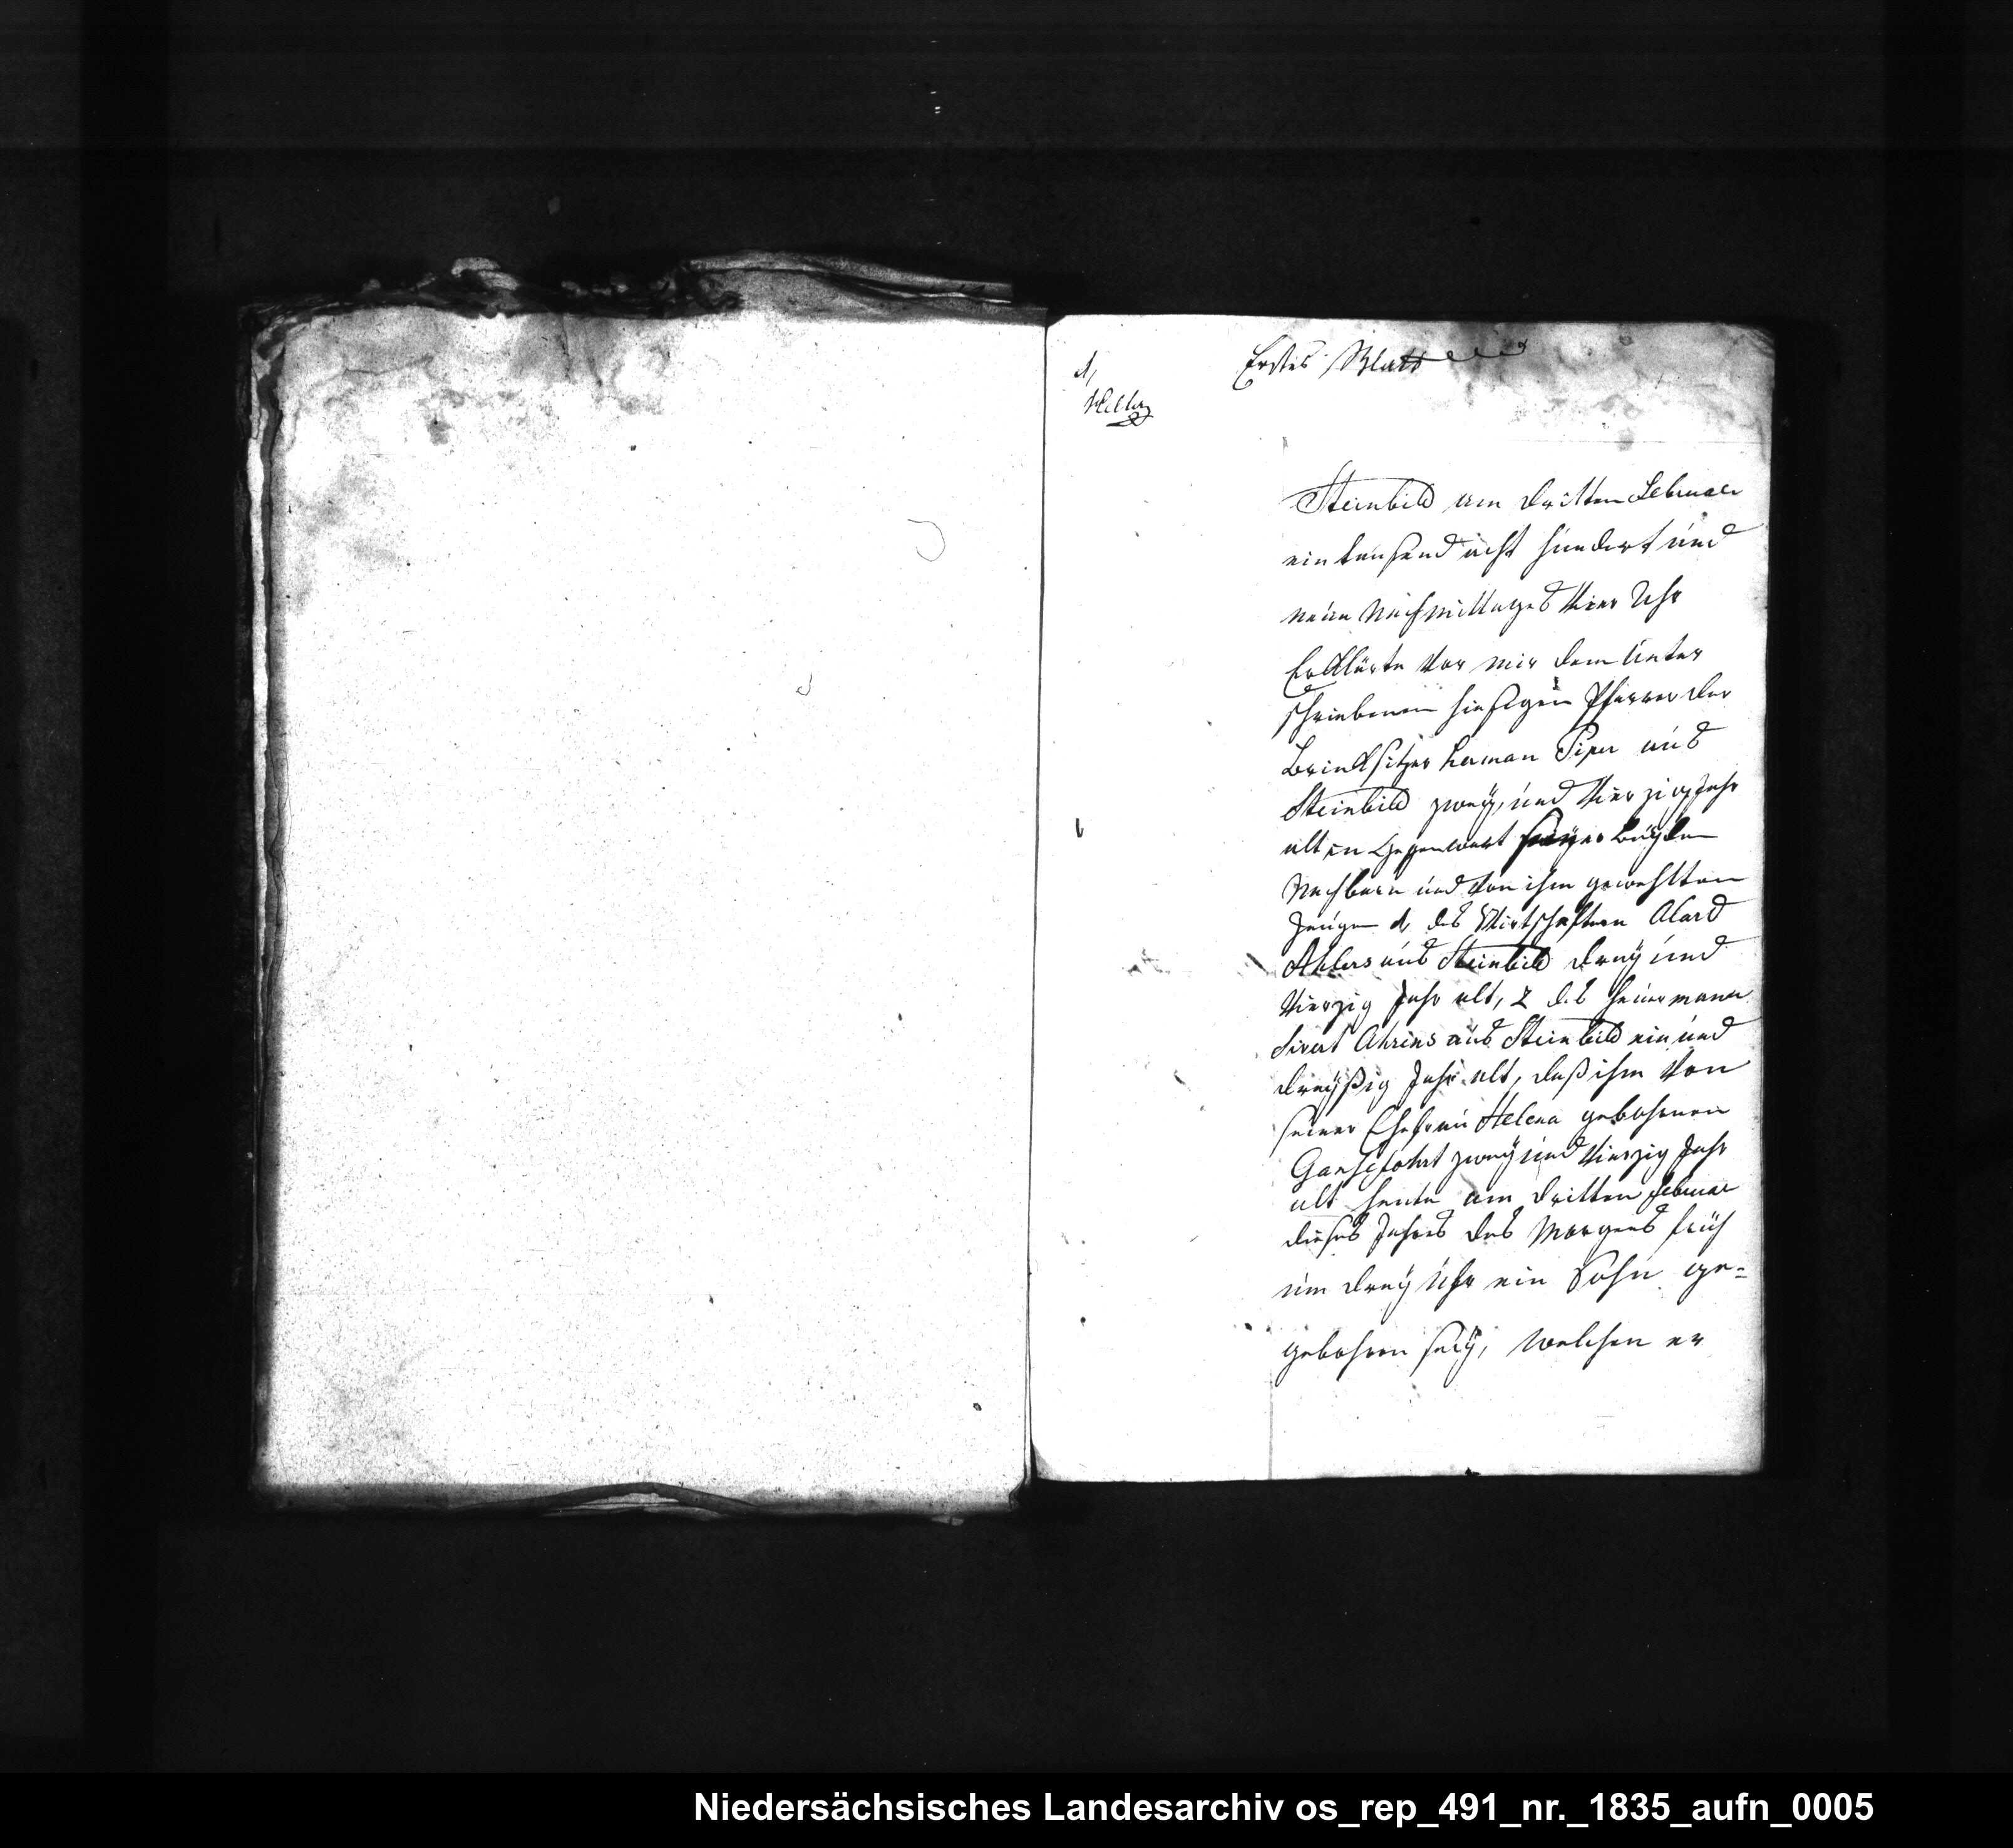 1,
Erstes Blatt
Steinbild am dritten Februar
ein tausend acht hundert und
neun Nachmittages Vier Uhr
Erklärte vor mir dem unter
schriebenen hiesigen Pfarrer der
Brinksitzer Herman Piper aus
Steinbild zwey und Vierzig Jahr
alt in Gegenwart seyner beyden
Nachbarn und von ihm gewehlten
Zeugen 1, des Wirtschaftern Alard
Ahlers aus Steinbild drey und
Vierzig Jahr alt, 2 des Heuermann
Sivert Ahrens aus Steinbild ein und
dreyßig Jahr alt, daß ihm Von
seiner Ehefrau Helena gebohrnen
Gansefohrt zwey und Vierzig Jahr
alt heute am dritten Februar
dieses Jahres des Morgens früh
um drey Uhr ein Sohn ge=
gebohren sey, welchen er
Niedersächsisches Landesarchiv os_rep_491_nr._1835_aufn_0005